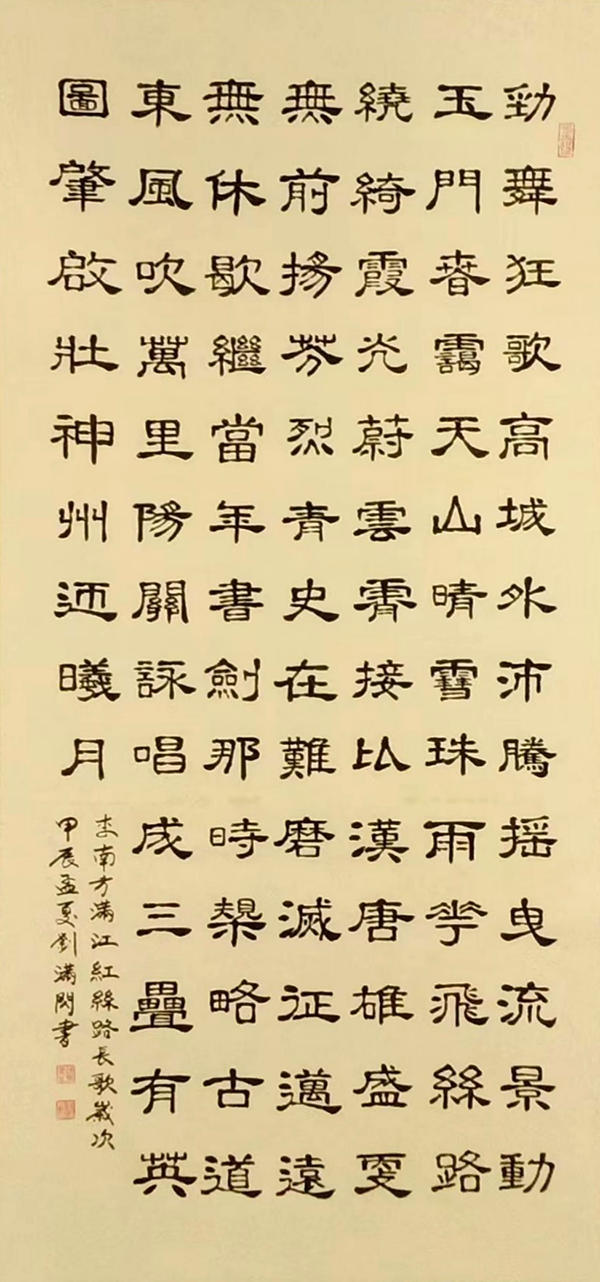 勁舞狂歌高城外沛騰摇曳流景動
玉門春靄天山晴雪珠雨花飛絲路
繞綺霞光蔚雲霄接比漢唐雄盛更
無前揚芬烈青史在難磨滅征邁遠
無休歇繼當年書劍那時槼略古道
東風吹萬里陽關詠唱成三疊有英
圖肇啟壯神州迎曦月
李南方滿江紅絲路長歌歲次
甲辰孟夏劉滿閃書